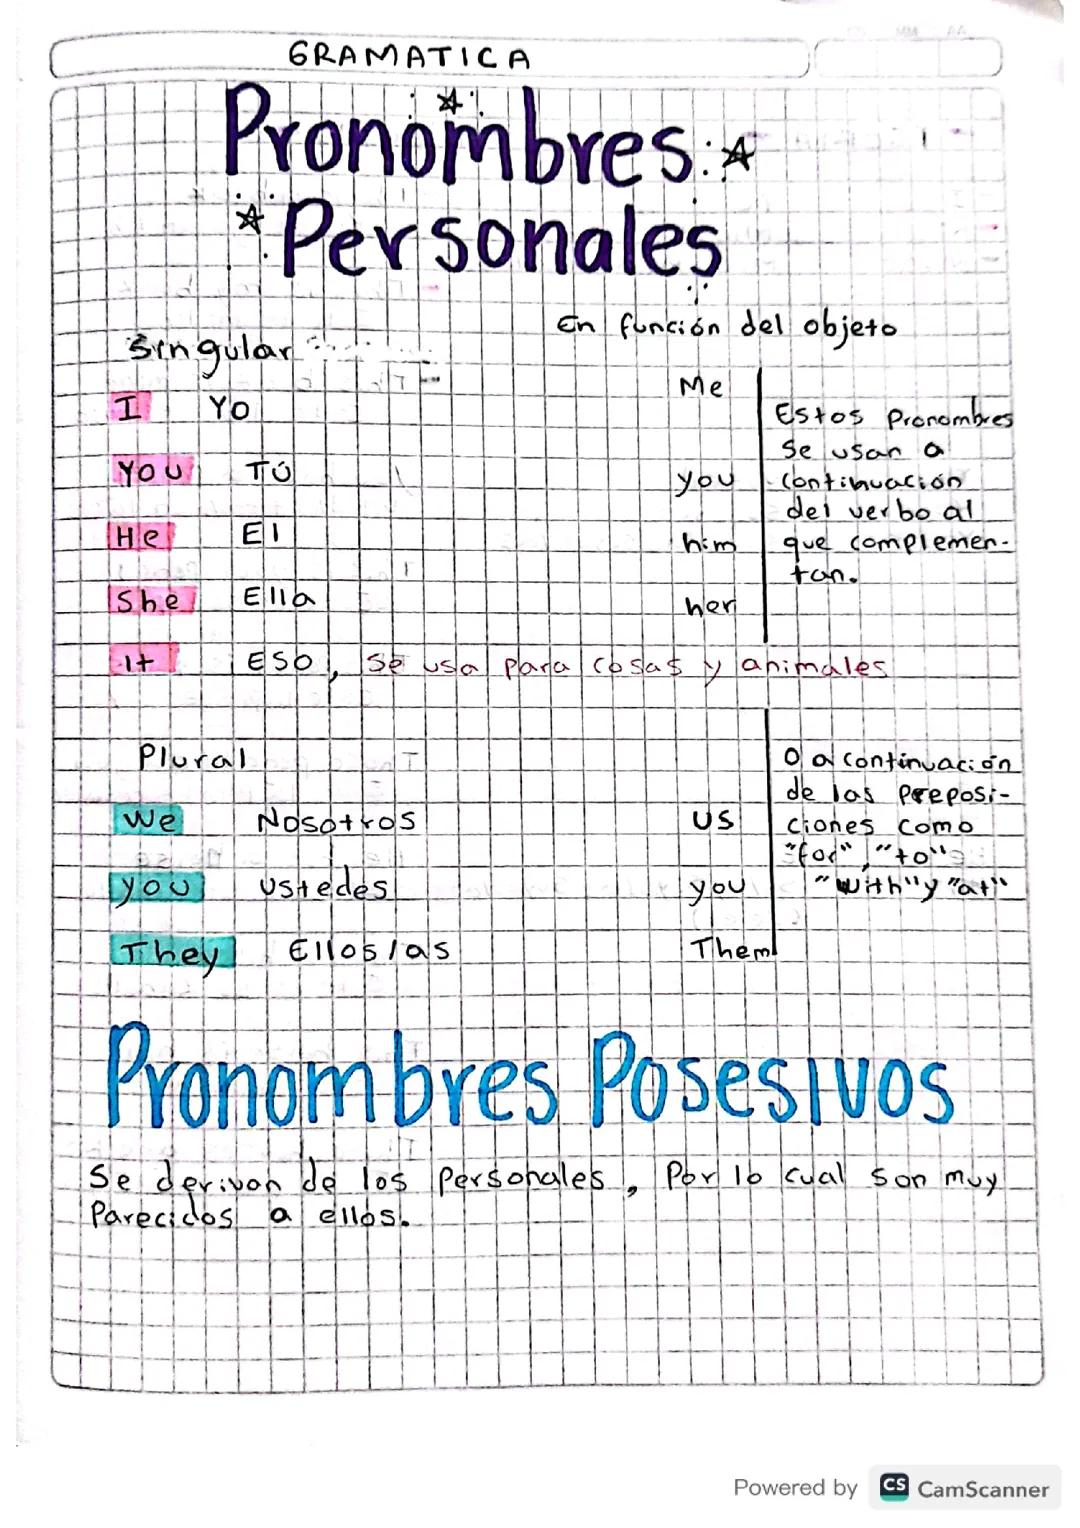 GRAMATICA
Pronombres
Personales
En función del objeto
Singular
I YO Me
YOU TÚ you
He El him
She Ella her
Estos Pronombres
se usan a
continuación
del verbo al
que complemen-
tan.
It ESO, Se usa para cosas y animales
Plural
We Nosotros US
you ustedes you
They Ellos/as Them
O a continuación
de las preposi-
ciones como
"for", "to"
"with" y "at"
Pronombres Posesivos
Se derivan de los personales, Por lo cual son muy
Parecidos a ellos.
Powered by CS CamScanner